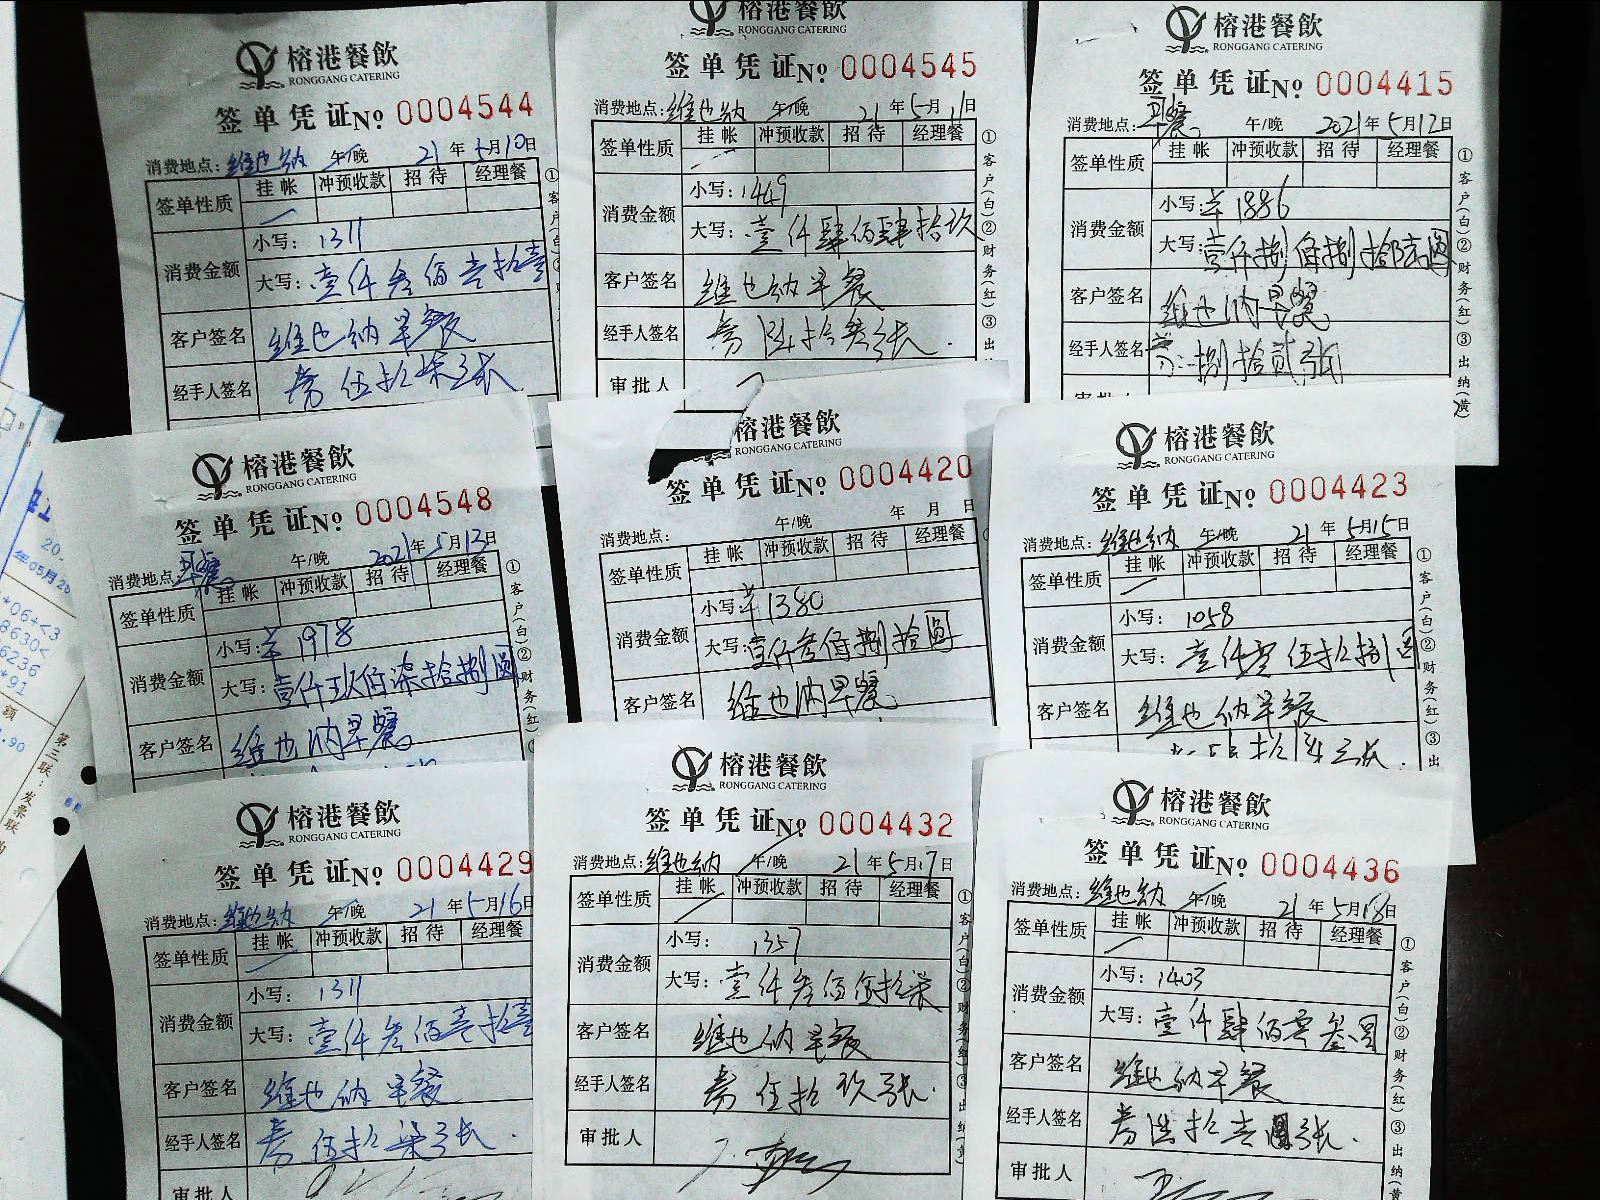 榕港餐飲
RONGGANG CATERING
签单凭证No 0004544
消费地点：维也纳 午/晚 21年5月10日
签单性质 挂帐 冲预收款 招待 经理餐
消费金额 小写：1311
大写：壹仟叁佰壹拾壹
客户签名 维也纳早餐
经手人签名 券伍拾柒张
榕港餐飲
RONGGANG CATERING
签单凭证No 0004545
消费地点：维也纳 午/晚 21年5月11日
签单性质 挂帐 冲预收款 招待 经理餐
消费金额 小写：1449
大写：壹仟肆佰肆拾玖
客户签名 维也纳早餐
经手人签名 券陆拾叁张
审批人
①客户(白)②财务(红)③出
榕港餐飲
RONGGANG CATERING
签单凭证No 0004415
消费地点：早餐 午/晚 2021年5月12日
签单性质 挂帐 冲预收款 招待 经理餐
消费金额 小写：羊1886
大写：壹仟捌佰捌拾陆圆
客户签名 维也纳早餐
经手人签名 券：捌拾贰张
审批人
①客户(白)②财务(红)③出纳(黄)
榕港餐飲
RONGGANG CATERING
签单凭证No 0004548
消费地点：早餐 午/晚 2021年5月13日
签单性质 挂帐 冲预收款 招待 经理餐
消费金额 小写：羊1978
大写：壹仟玖佰柒拾捌圆
客户签名 维也纳早餐
①客户(白)②财务(红)
榕港餐飲
RONGGANG CATERING
签单凭证No 0004420
消费地点： 午/晚 年 月 日
签单性质 挂帐 冲预收款 招待 经理餐
消费金额 小写：羊1380
大写：壹仟叁佰捌拾圆
客户签名 维也纳早餐
榕港餐飲
RONGGANG CATERING
签单凭证No 0004423
消费地点：维也纳 午/晚 21年5月15日
签单性质 挂帐 冲预收款 招待 经理餐
消费金额 小写：1058
大写：壹仟零伍拾捌圆
客户签名 维也纳早餐
①客户(白)②财务(红)③出
榕港餐飲
RONGGANG CATERING
签单凭证No 0004429
消费地点：维也纳 午/晚 21年5月16日
签单性质 挂帐 冲预收款 招待 经理餐
消费金额 小写：1311
大写：壹仟叁佰壹拾壹
客户签名 维也纳早餐
经手人签名 券伍拾柒张
审批人
榕港餐飲
RONGGANG CATERING
签单凭证No 0004432
消费地点：维也纳 午/晚 21年5月17日
签单性质 挂帐 冲预收款 招待 经理餐
消费金额 小写：1357
大写：壹仟叁佰伍拾柒
客户签名 维也纳早餐
经手人签名 券伍拾玖张
审批人
①客户(白)②财务(红)③出纳(黄)
榕港餐飲
RONGGANG CATERING
签单凭证No 0004436
消费地点：维也纳 午/晚 21年5月18日
签单性质 挂帐 冲预收款 招待 经理餐
消费金额 小写：1403
大写：壹仟肆佰零叁圆
客户签名 维也纳早餐
经手人签名 券陆拾壹张
审批人
①客户(白)②财务(红)③出纳(黄)
年05月20
*06+<3
8630<
6236
*91
额
.90
第三联：发票联